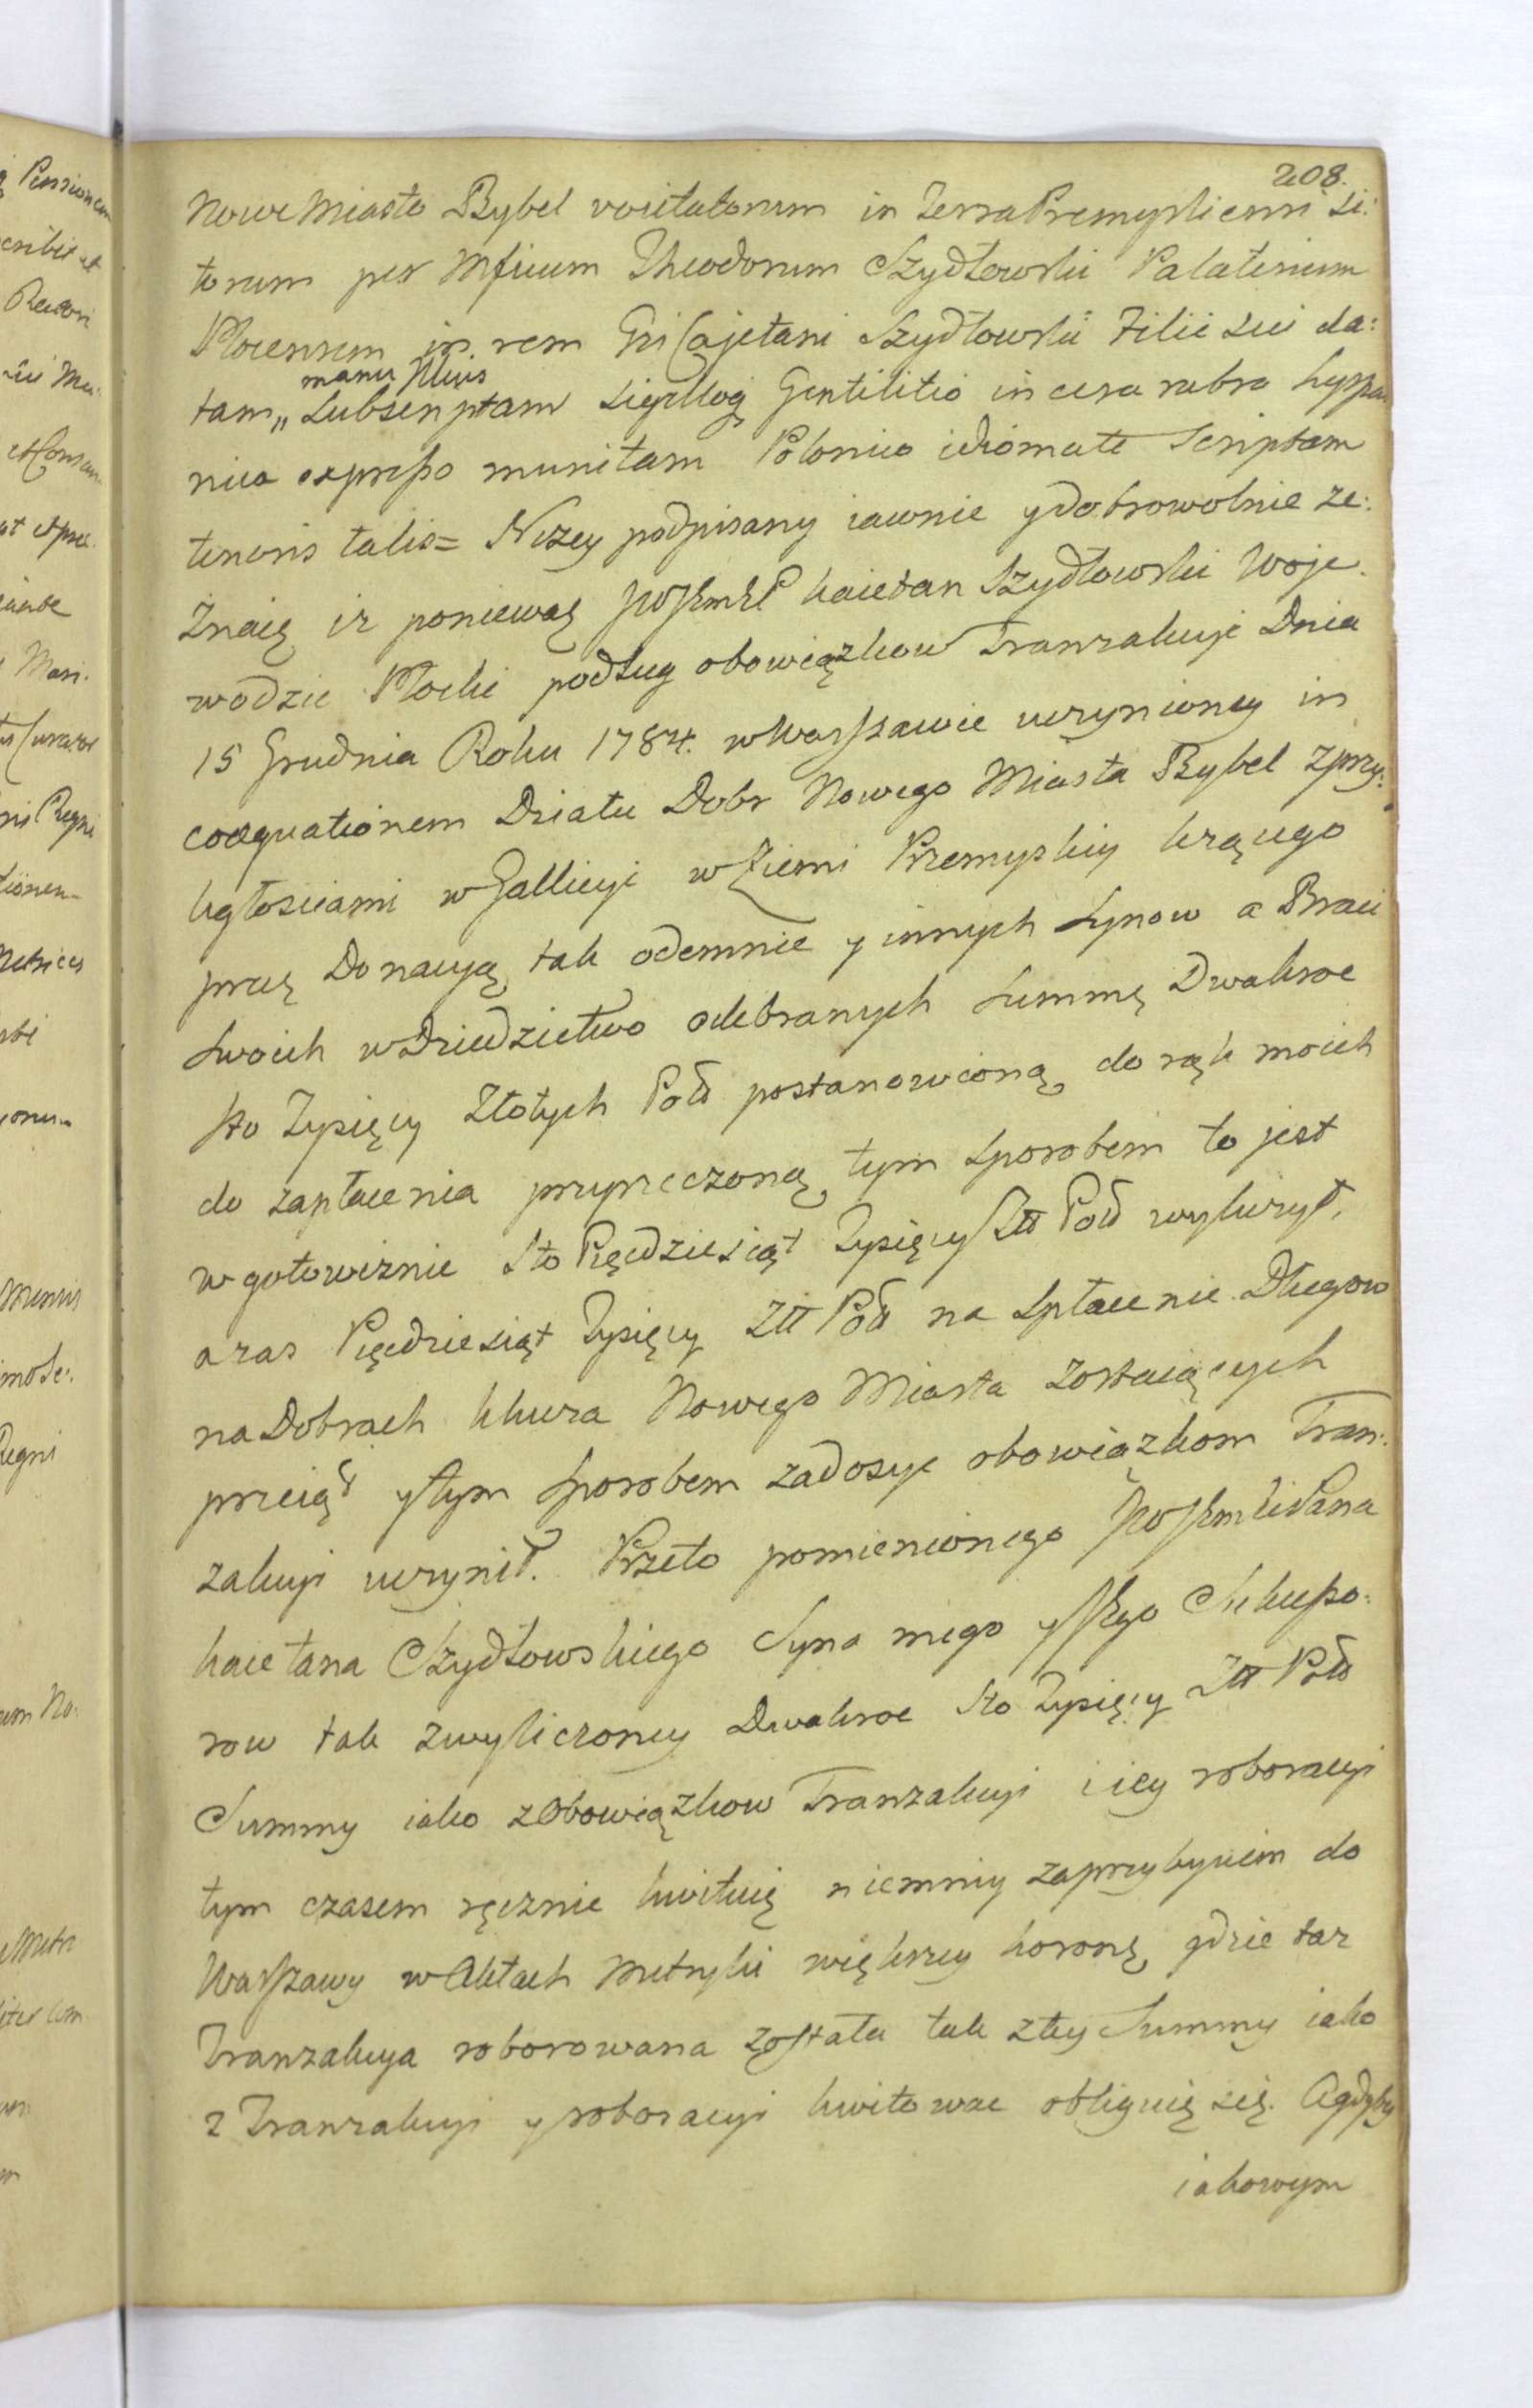 208.
Nowe Miasto Bybel vocitatorum in Terra Premysliensi si:
torum per Mficum Theodorum Szydłowski Palatinum
Plocensem in rem Gsi Cajetani Szydłowski Filii sui da:
manu Illius
tam„ Subscriptam Sigilloq Gentilitio in cera rubra hyspa
nica expresso munitam Polonico idiomate Scriptam
tenoris talis= Nizey podpisany iawnie y dobrowolnie ze:
znaię iz poniewaz Kaietan Szydłowski Woje
wodzic Płocki podług obowiązkow Tranzakcyi Dnia
15 Grudnia Roku 1784. w Warszawie uczynioney in
coæquationem Działu Dobr Nowego Miasta Bybel z przy:
ległosciami w Gallicyi w Ziemi Przemyskiey lezącego
przez Donacyą tak odemnie y innych Synow a Braci
Swoich w Dziedzictwo odebranych Summę Dwakroc
sto Tysięcy Złotych Pols postanowioną do rąk moich
do zapłacenia przyrzeczoną tym sposobem to jest
w gotowiznie Sto Pięcdziesiąt Tysięcy Złł Pols wyliczył,
a zas Pięcdziesiąt Tysięcy Złł Pols na Spłacenie Długow
na Dobrach Klucza Nowego Miasta zostaiących
przeiął y tym sposobem zadosyc obowiązkom Tran:
zakcyi uczynił. Przeto pomienionego Pana
Kaietana Szydłowskiego Syna mego y Jego Sukcesso:
row tak z wyliczoney Dwakroc Sto Tysięcy Złł Pols
Summy iako z Obowiązkow Tranzakcyi i iey roboracyi
tym czasem ręcznie kwituię niemniey za przybyciem do
Warszawy w Aktach Metryki większey Koronę gdzie taz
Tranzakcya roborowana została tak z tey Summy iako
z Tranzakcyi y roboracyi kwitowac obliguię się. A gdyby
iakowym
Pensionem
Regni
Metrices
Regni